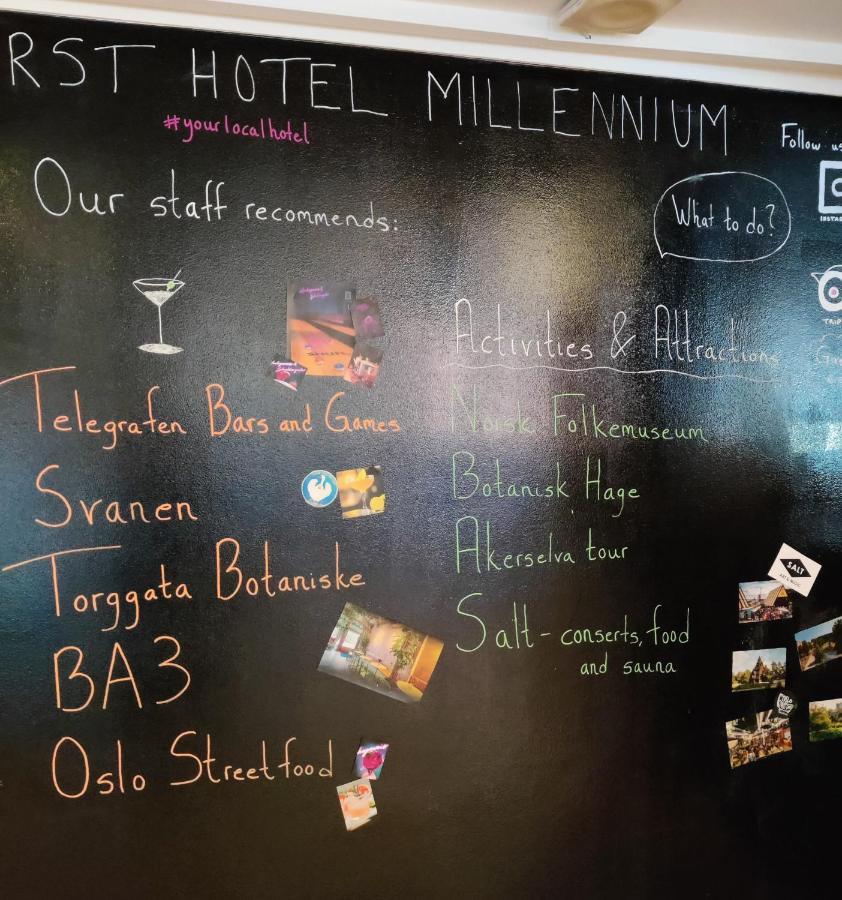 RST HOTEL MILLENNIUM
#yourlocalhotel
Follow us
Our staff recommends:
What to do?
Telegrafen Bars and Games
Svanen
Torggata Botaniske
BA3
Oslo Streetfood
Activities & Attractions
Norsk Folkemuseum
Botanisk Hage
Akerselva tour
Salt - conserts, food
and sauna
SALT
ART & MUSIC
INSTAG
TRIP